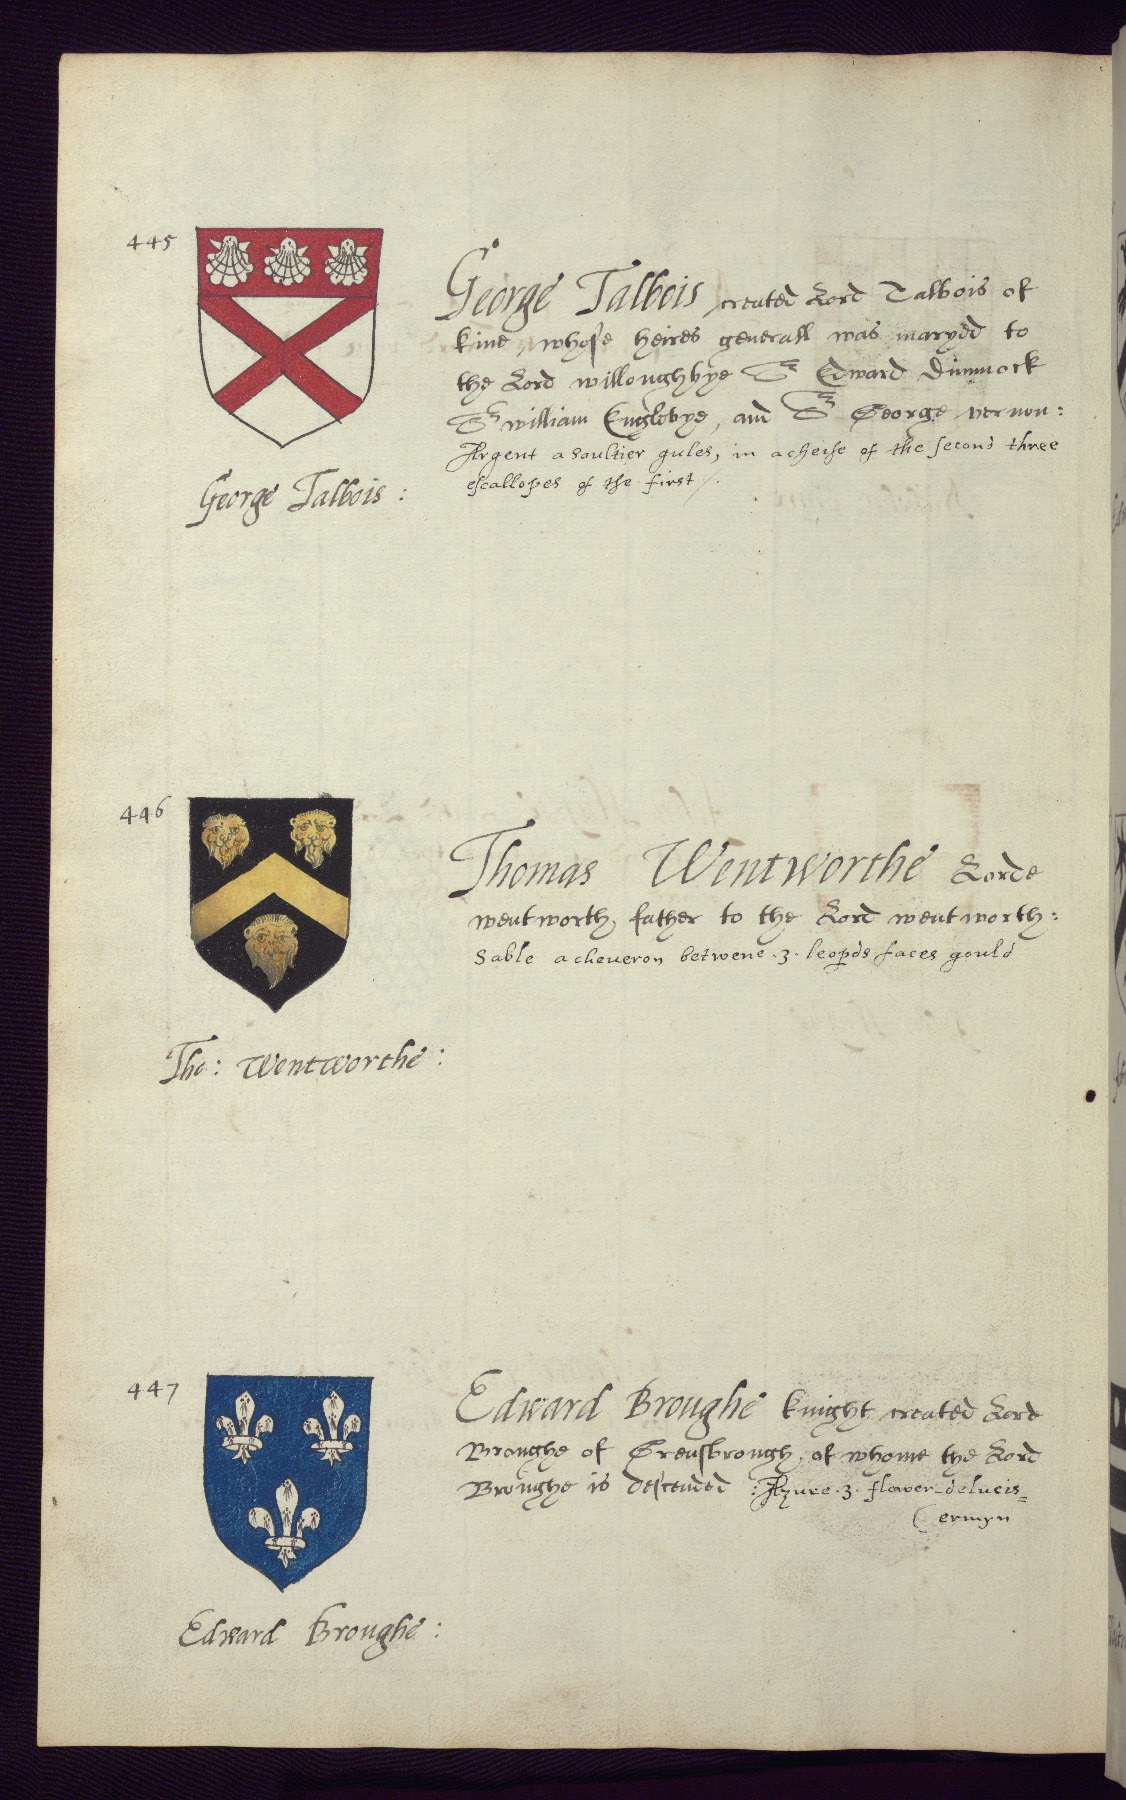 445
George Talbois created Lord Talbois of
kine, whose heires generall was maryed to
the Lord willoughbye Sr Edward Dimmock
Sr william Englebye, and Sr George vernon:
Argent a saultier gules, in a cheife of the second three
escallopes of the first /.
George Talbois :
446
Thomas Wentworthe Lorde
wentworth, father to the Lord wentworth:
Sable a cheueron betwene .3. leopds faces gould
Tho: Wentworthe :
447
Edward Broughe knight created Lord
Broughe of Grensbrough, of whome the Lord
Broughe is descended : Azure .3. flower delucis=
( ermyn
Edward Broughe :